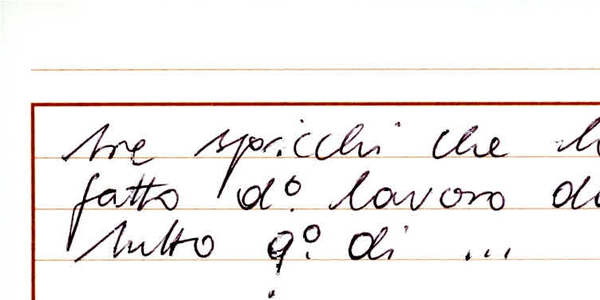 tre spicchi che
fatto d° lavoro
tutto q° di ...